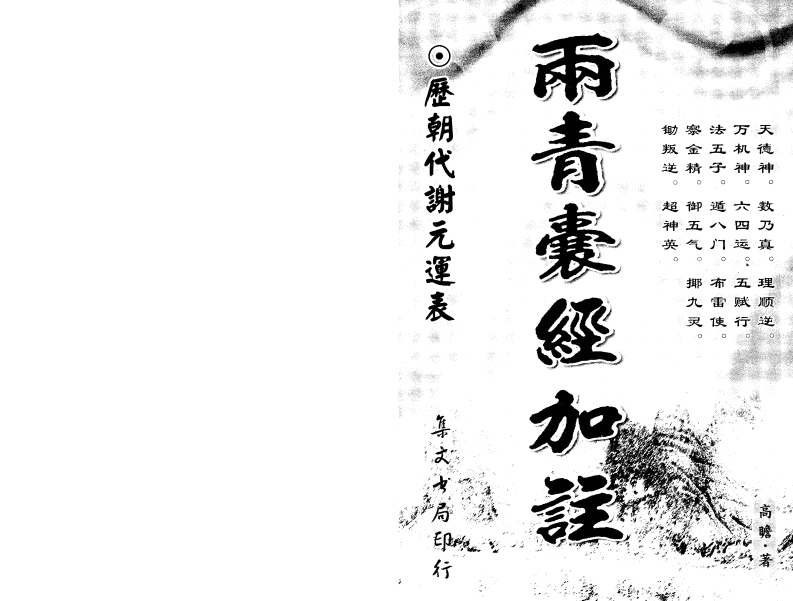 天德神。数乃真。理顺逆。
万机神。六四运、五贼行。
法五子。遁八门。布雷使。
察金精。御五气。揶九灵。
锄叛逆。超神英。
高瞻·著
兩青囊經加註
⊙歷朝代謝元運表
集文书局印行